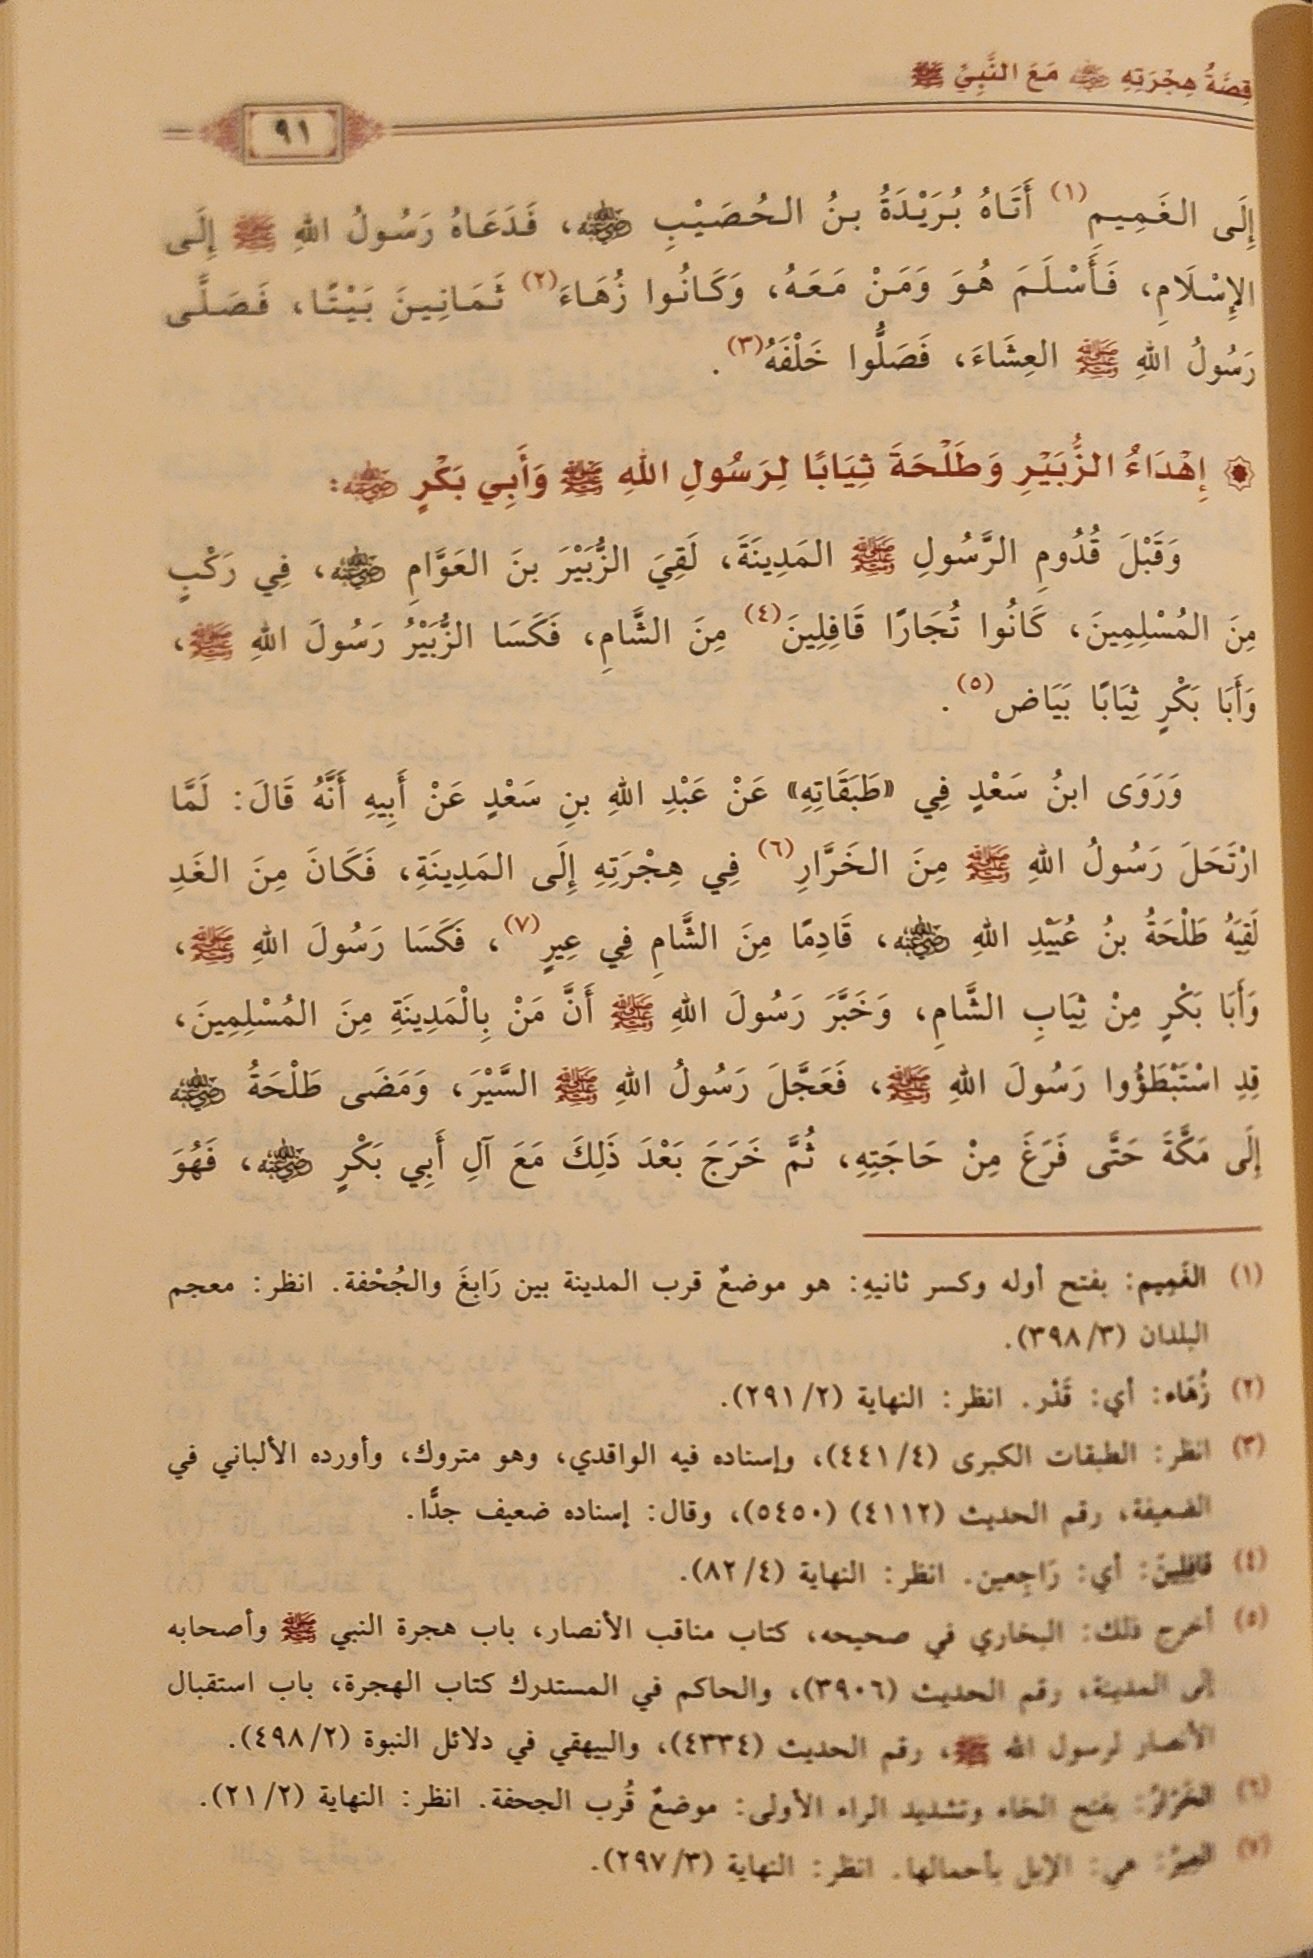 قِصَّةُ هِجْرَتِهِ ﵁ مَعَ النَّبِيِّ ﷺ
٩١
إِلَى الغَمِيمِ(١) أَتَاهُ بُرَيْدَةُ بنُ الحُصَيْبِ ﵁، فَدَعَاهُ رَسُولُ اللهِ ﷺ إِلَى
الإِسْلَامِ، فَأَسْلَمَ هُوَ وَمَنْ مَعَهُ، وَكَانُوا زُهَاءَ(٢) ثَمَانِينَ بَيْتًا، فَصَلَّى
رَسُولُ اللهِ ﷺ العِشَاءَ، فَصَلُّوا خَلْفَهُ(٣).
إِهْدَاءُ الزُّبَيْرِ وَطَلْحَةَ ثِيَابًا لِرَسُولِ اللهِ ﷺ وَأَبِي بَكْرٍ ﵁:
وَقَبْلَ قُدُومِ الرَّسُولِ ﷺ المَدِينَةَ، لَقِيَ الزُّبَيْرَ بنَ العَوَّامِ ﵁، فِي رَكْبٍ
مِنَ المُسْلِمِينَ، كَانُوا تُجَارًا قَافِلِينَ(٤) مِنَ الشَّامِ، فَكَسَا الزُّبَيْرُ رَسُولَ اللهِ ﷺ،
وَأَبَا بَكْرٍ ثِيَابًا بَيَاض(٥).
وَرَوَى ابنُ سَعْدٍ فِي «طَبَقَاتِهِ» عَنْ عَبْدِ اللهِ بنِ سَعْدٍ عَنْ أَبِيهِ أَنَّهُ قَالَ: لَمَّا
ارْتَحَلَ رَسُولُ اللهِ ﷺ مِنَ الخَرَّارِ(٦) فِي هِجْرَتِهِ إِلَى المَدِينَةِ، فَكَانَ مِنَ الغَدِ
لَقِيَهُ طَلْحَةُ بنُ عُبَيْدِ اللهِ ﵁، قَادِمًا مِنَ الشَّامِ فِي عِيرٍ(٧)، فَكَسَا رَسُولَ اللهِ ﷺ،
وَأَبَا بَكْرٍ مِنْ ثِيَابِ الشَّامِ، وَخَبَّرَ رَسُولَ اللهِ ﷺ أَنَّ مَنْ بِالْمَدِينَةِ مِنَ المُسْلِمِينَ،
قِدِ اسْتَبْطَؤُوا رَسُولَ اللهِ ﷺ، فَعَجَّلَ رَسُولُ اللهِ ﷺ السَّيْرَ، وَمَضَى طَلْحَةُ ﵁
إِلَى مَكَّةَ حَتَّى فَرَغَ مِنْ حَاجَتِهِ، ثُمَّ خَرَجَ بَعْدَ ذَلِكَ مَعَ آلِ أَبِي بَكْرٍ ﵁، فَهُوَ
(١) الغَمِيم: بفتح أوله وكسر ثانيهِ: هو موضعٌ قرب المدينة بين رَابغَ والجُحْفة. انظر: معجم
البلدان (٣/٣٩٨).
(٢) زُهَاء: أي: قَدْر. انظر: النهاية (٢/٢٩١).
(٣) انظر: الطبقات الكبرى (٤/٤٤١)، وإسناده فيه الواقدي، وهو متروك، وأورده الألباني في
الضعيفة، رقم الحديث (٤١١٢) (٥٤٥٠)، وقال: إسناده ضعيف جدًّا.
(٤) قَافِلِينَ: أي: رَاجِعين. انظر: النهاية (٤/٨٢).
(٥) أخرج ذلك: البخاري في صحيحه، كتاب مناقب الأنصار، باب هجرة النبي ﷺ وأصحابه
إلى المدينة، رقم الحديث (٣٩٠٦)، والحاكم في المستدرك كتاب الهجرة، باب استقبال
الأنصار لرسول الله ﷺ، رقم الحديث (٤٣٣٤)، والبيهقي في دلائل النبوة (٢/٤٩٨).
(٦) الخَرَّارُ: بفتح الخاء وتشديد الراء الأولى: موضعٌ قُرب الجحفة. انظر: النهاية (٢/٢١).
(٧) العِيرُ: هي: الإبل بأحمالها. انظر: النهاية (٣/٢٩٧).